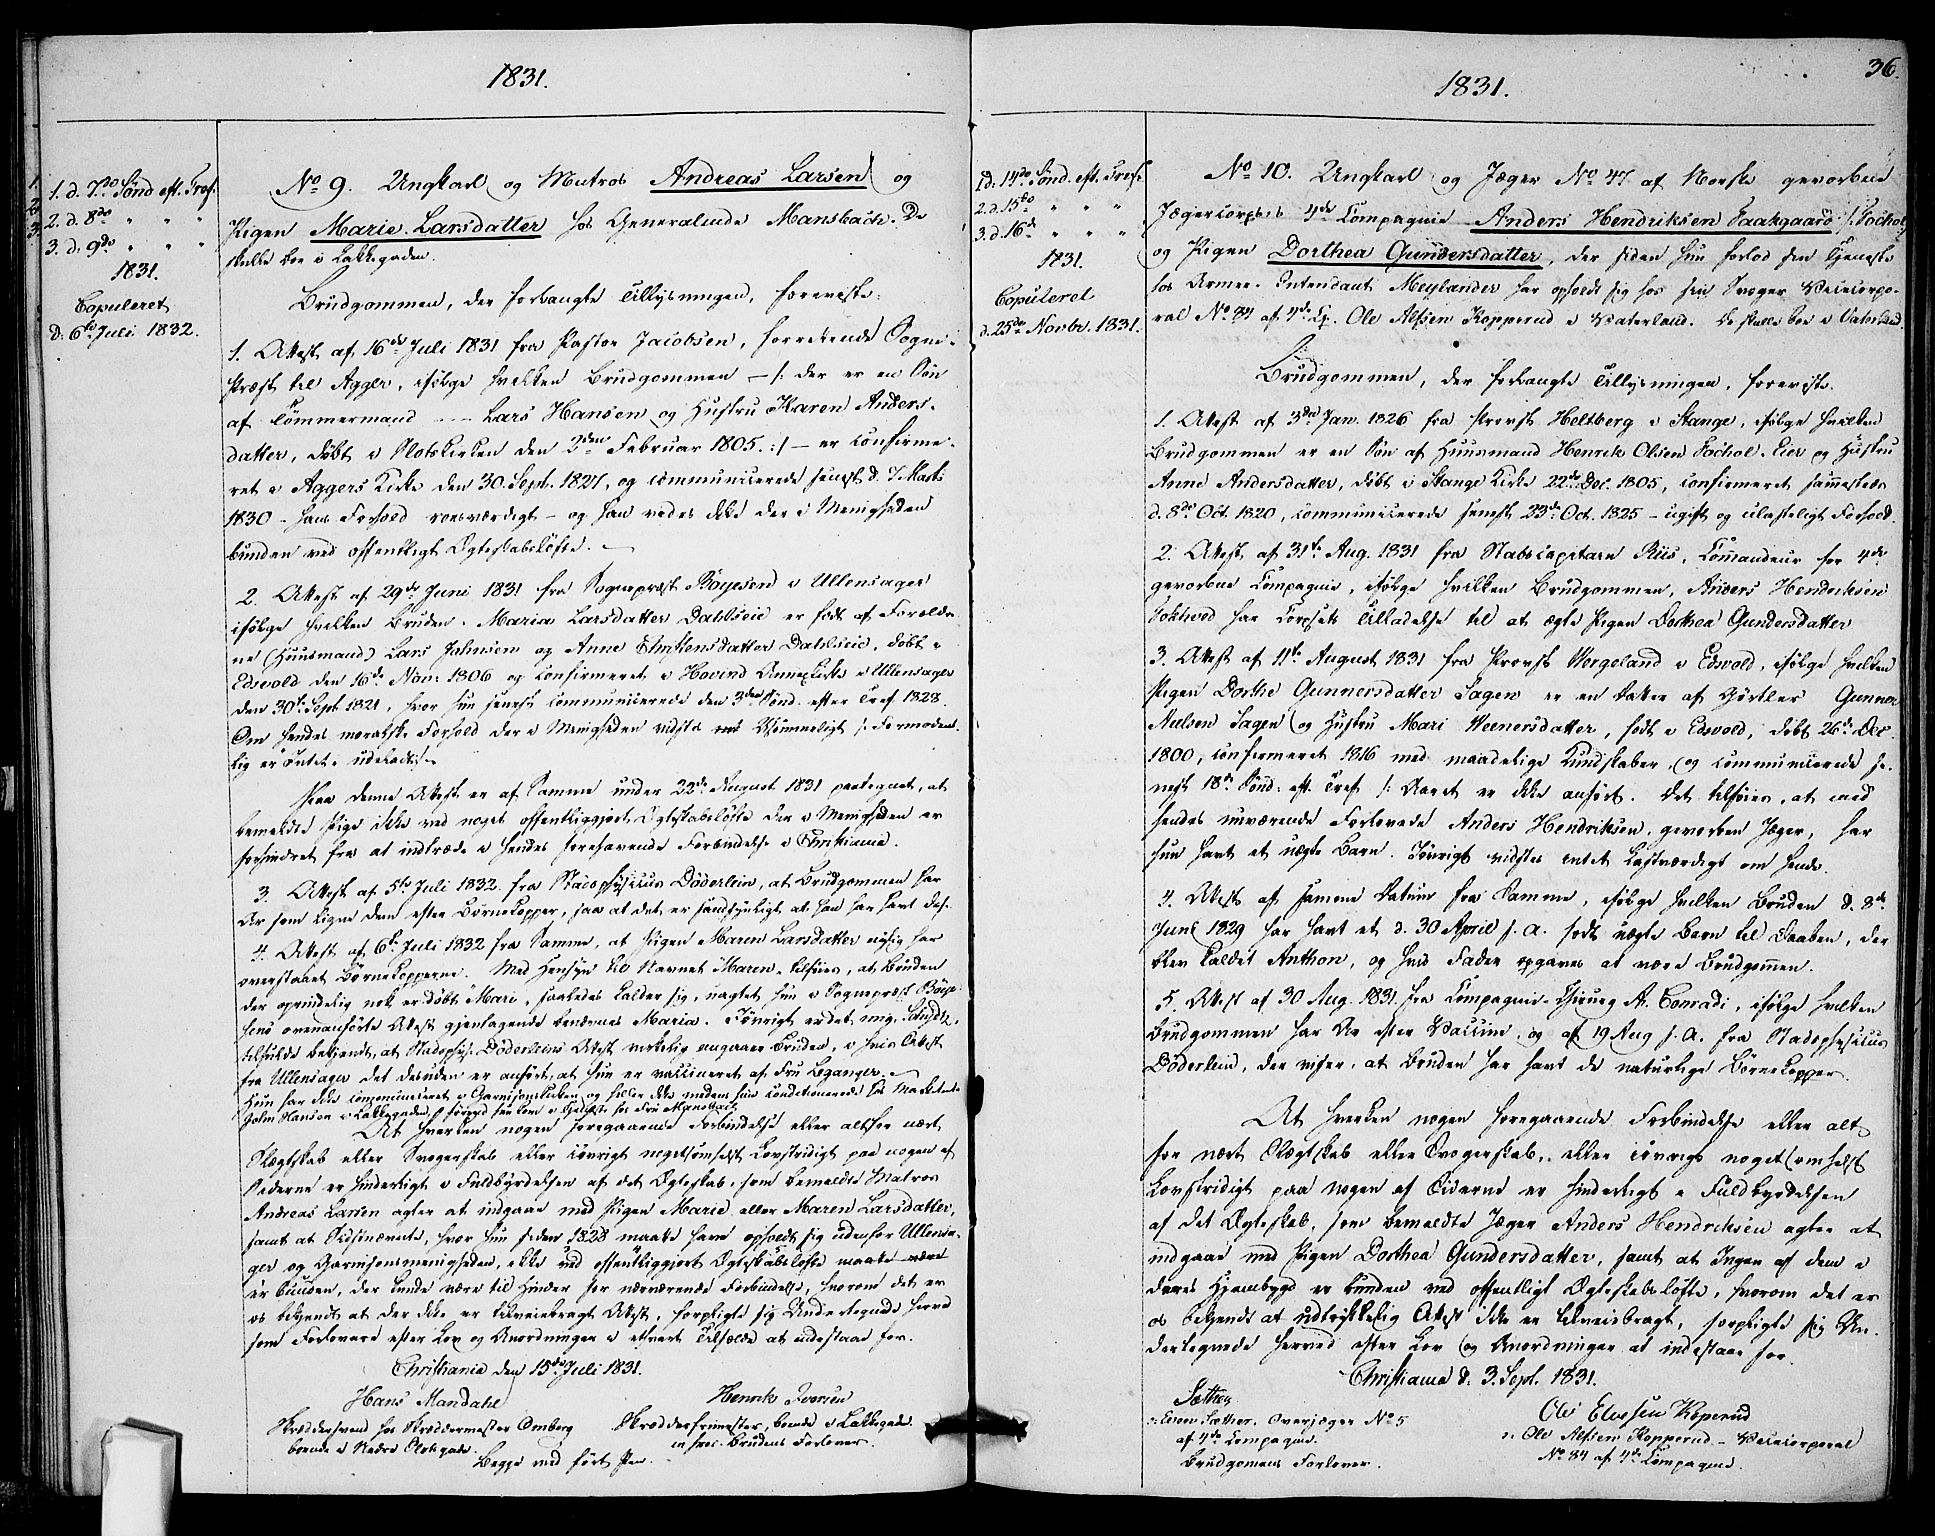 1831.
1. d. 7de Sønd eft. Tref.
2. d. 8de " " "
3. d. 9de " " "
1831.
Copuleret
d. 6te Juli 1832.
No 9. Ungkarl og Matros Andreas Larsen og
Pigen Marie Larsdatter hos Generalinde Mansbach. De
skulle boe i Lakkegaden.
Brudgommen, der forlangte Tillysningen, foreviste:
1. Attest af 16de Juli 1831 fra Pastor Jacobsen, forrettende Sogne-
præst til Agger, ifølge hvilken Brudgommen – /: der er en Søn
af Tømmermand – Lars Hansen og Hustru Karen Anders-
datter, døbt i Slotskirken den 3den Februar 1805. :/ – er confirme-
ret i Aggers Kirke den 30. Sept. 1827, og communicerede senest d. 7 Marts
1830 – hans Forhold roesværdigt – og han vides ikke der i Menigheden
bunden ved offentligt Ægteskabsløfte. –
2. Attest af 29de Juni 1831 fra Sognepræst Böyesen i Ullensager
ifølge hvilken Bruden, Maria Larsdatter Dahlseie er født af Forældre-
ne (Huusmand) Lars Johnsen og Anne Christensdatter Dahlseie, døbt i
Edsvold den 16de Nov: 1806 og confirmeret i Hovind Annexkirke i Ullensager
den 30te Sept. 1821, hvor hun senest communicerede den 3die Sønd. efter Tref. 1828.
Om hendes moralske Forhold der i Menigheden vidstes Ufømmeligt /: Formodent-
lig er Intet udeladt :/ –
Paa denne Attest er af Samme under 22de August 1831 paategnet, at
bemeldte Pige ikke ved noget offentliggjort Ægteskabsløfte der i Menigheden er
forhindret fra at indtræde i hendes forehavende Forbindelse i Christiania.
3. Attest af 5te Juli 1832 fra Stadsphysicus Döderlein, at Brudgommen har
Ar som ligne dem efter Børnekopper, saa at det er sandsynligt at han har havt des.
4. Attest af 6te Juli 1832 fra Samme, at Pigen Maren Larsdatter nylig har
overstaaet Børnekopperne. Med Hensyn til Navnet Maren tilføies, at Bruden
der oprindelig nok er døbt Mari, saaledes kalder sig, uagtet hun i Sognepræst Böye-
sens ovenanførte Attest gjentagende benævnes Maria. Iøvrigt er det mig,
tilfulde bekjendt, at Stadsphys. Döderleins Attest virkelig angaaer Bruden, i hvis Attest
fra Ullensager det desuden er anført, at hun er vaccineret af Fru Leganger. –
Hun har ikke communiceret i Garnisonskirken og heller ikke medens hun conditionerede hos
John Hansen i Lakkegaden, førend hun kom i Tjeneste hos Fru Mansbach.
At hverken nogen foregaaende Forbindelse eller altfor nært
Slægtskab eller Svogerskab eller iøvrigt nogetsomhelst Lovstridigt paa nogen af
Siderne er hinderligt i Fuldbyrdelsen af det Ægteskab, som bemeldte Matros
Andreas Larsen agter at indgaae med Pigen Marie eller Maren Larsdatter,
samt at Sidstnævnte, hvor hun siden 1828 maatte have opholdt sig udenfor Ullensa-
ger og Garnisonsmenigheden, ikke ved offentliggjort Ægteskabsløfte maatte være
er bunden, der kunde være til Hinder for nærværende Forbindelse, hvorom det er
os bekjendt at der ikke er tilveiebragt Attest, forpligte sig Undertegnede herved
som Forlovere efter Lov og Anordninger i ethvert Tilfælde at indestaae for.
Christiania den 15de Juli 1831.
Hans Mandahl
Skræddersvend hos Skræddermester Omberg
boende i Nedre Slotsgade.
Henrik Iversen
Skrædderfrimester, boende i Lakkegaden
Brudens Forlover.
Begge med ført Pen.
1831.
36.
1 d. 14de Sønd. eft. Tref.
2. d. 15de " " "
3. d. 16de " " "
1831.
Copuleret
d. 25de Novbr. 1831.
No 10. Ungkarl og Jæger No 47 af Norske gevorbne
Jægercorpses 4de Compagnie Anders Hendriksen Saakgaard /: Sochol
og Pigen Dorthea Gundersdatter, der siden hun forlod sin Tjeneste
hos Armee-Intendant Meylænder har opholdt sig hos sin Svoger Vicecorpo-
ral No 84 af 4de Cp. Ole Alfsen Kopperud i Vaterland. De skulle boe i Vaterland.
Brudgommen, der forlangte Tillysningen, foreviste:
1. Attest af 3die Jan. 1826 fra Provst Heltberg i Stange, ifølge hvilken
Brudgommen er en Søn af Huusmand Henrik Olsen Sochol-Eier og Hustru
Anne Andersdatter, døbt i Stange Kirke 22de Dec. 1805, confirmeret sammesteds
d. 8de Oct. 1820, communicerede senest 23de Oct. 1825 – ugift og ulasteligt Forhold.
2. Attest af 31te Aug. 1831 fra Stabscapitain Riis, Commandeur for 4de
gevorbne Compagnie, ifølge hvilken Brudgommen, Anders Hendriksen
Sokhved har Corpsets Tilladelse til at ægte Pigen Dorthea Gundersdatter
3. Attest af 11te August 1831 fra Provst Wergeland i Edsvold, ifølge hvilken
Pigen Dorthe Gunnersdatter Sagen er en Datter af Gjørtler Gunner
Nielsen Sagen og Hustru Mari Weenersdatter, født i Edsvold, døbt 26de Dec.
1800, confirmeret 1816 med maadelige Kundskaber, og communicerede se-
nest 18de Sønd: eft. Tref /: Aaret er ikke anført. Det tilføies, at med
hendes nuværende Forlovede Anders Hendriksen, gevorben Jæger, har
hun havt et uægte Barn. Iøvrigt vidstes intet Lastværdigt om hende.
4. Attest af samme Datum fra Samme, ifølge hvilken Bruden d. 8de
Juni 1829 har havt et d. 30 April s. A. født uægte Barn til Daaben, der
blev kaldet Anthon, og hvis Fader opgaves at være Brudgommen.
5. Attest af 30 Aug. 1831. fra Compagnie-Chirurg A. Conradi, ifølge hvilken
Brudgommen har Ar efter Vaccine, og af 19 Aug s. A. fra Stadsphysicus
Döderlein, der viser, at Bruden har havt de naturlige Børnekopper.
At hverken nogen foregaaende Forbindelse eller alt
for nært Slægtskab eller Svogerskab, eller iøvrigt noget somhelst
Lovstridigt paa nogen af Siderne er hinderligt i Fuldbyrdelsen
af det Ægteskab, som bemeldte Jæger Anders Hendriksen agter at
indgaae med Pigen Dorthea Gundersdatter, samt at Ingen af dem i
deres Hjembygd er bunden ved offentligt Ægteskabsløfte, hvorom det er
os bekjendt at udtrykkelig Attest ikke er tilveiebragt, forpligte sig Un-
dertegnede herved efter Lov og Anordninger at indestaae for.
Christiania d. 3. Sept. 1831.
Sæther
Sæther, Overjæger No 5
af 4de Compagnie.
Brudgommens Forlover.
Ole Elvesen Koperud
/: Ole Alfsen Kopperud – Vicecorporal
No 84 af 4de Compagnie.